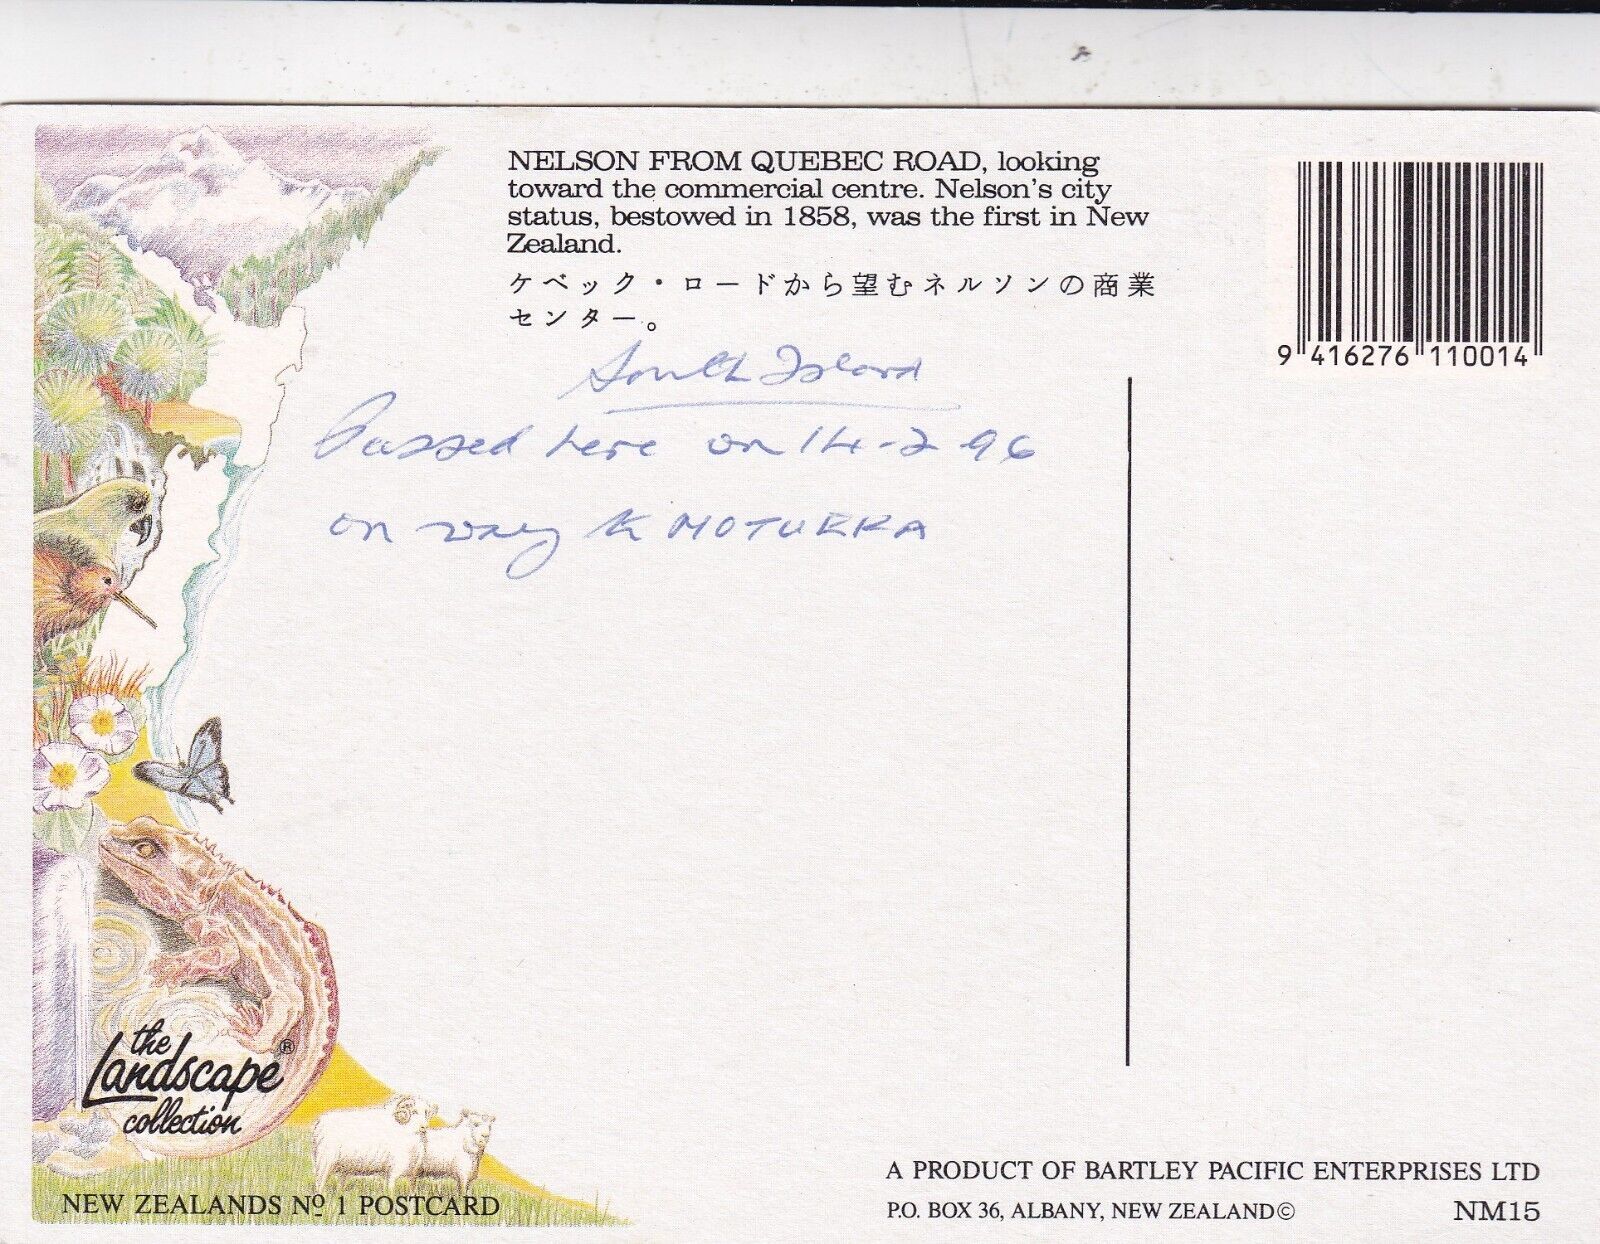 NELSON FROM QUEBEC ROAD, looking
toward the commercial centre. Nelson's city
status, bestowed in 1858, was the first in New
Zealand.
ケベック・ロードから望むネルソンの商業
センター。
9 416276 110014
South Island
Passed here on 14-2 96
on way to MOTUEKA
the
Landscape®
collection
NEW ZEALANDS Nº 1 POSTCARD
A PRODUCT OF BARTLEY PACIFIC ENTERPRISES LTD
P.O. BOX 36, ALBANY, NEW ZEALAND©
NM15